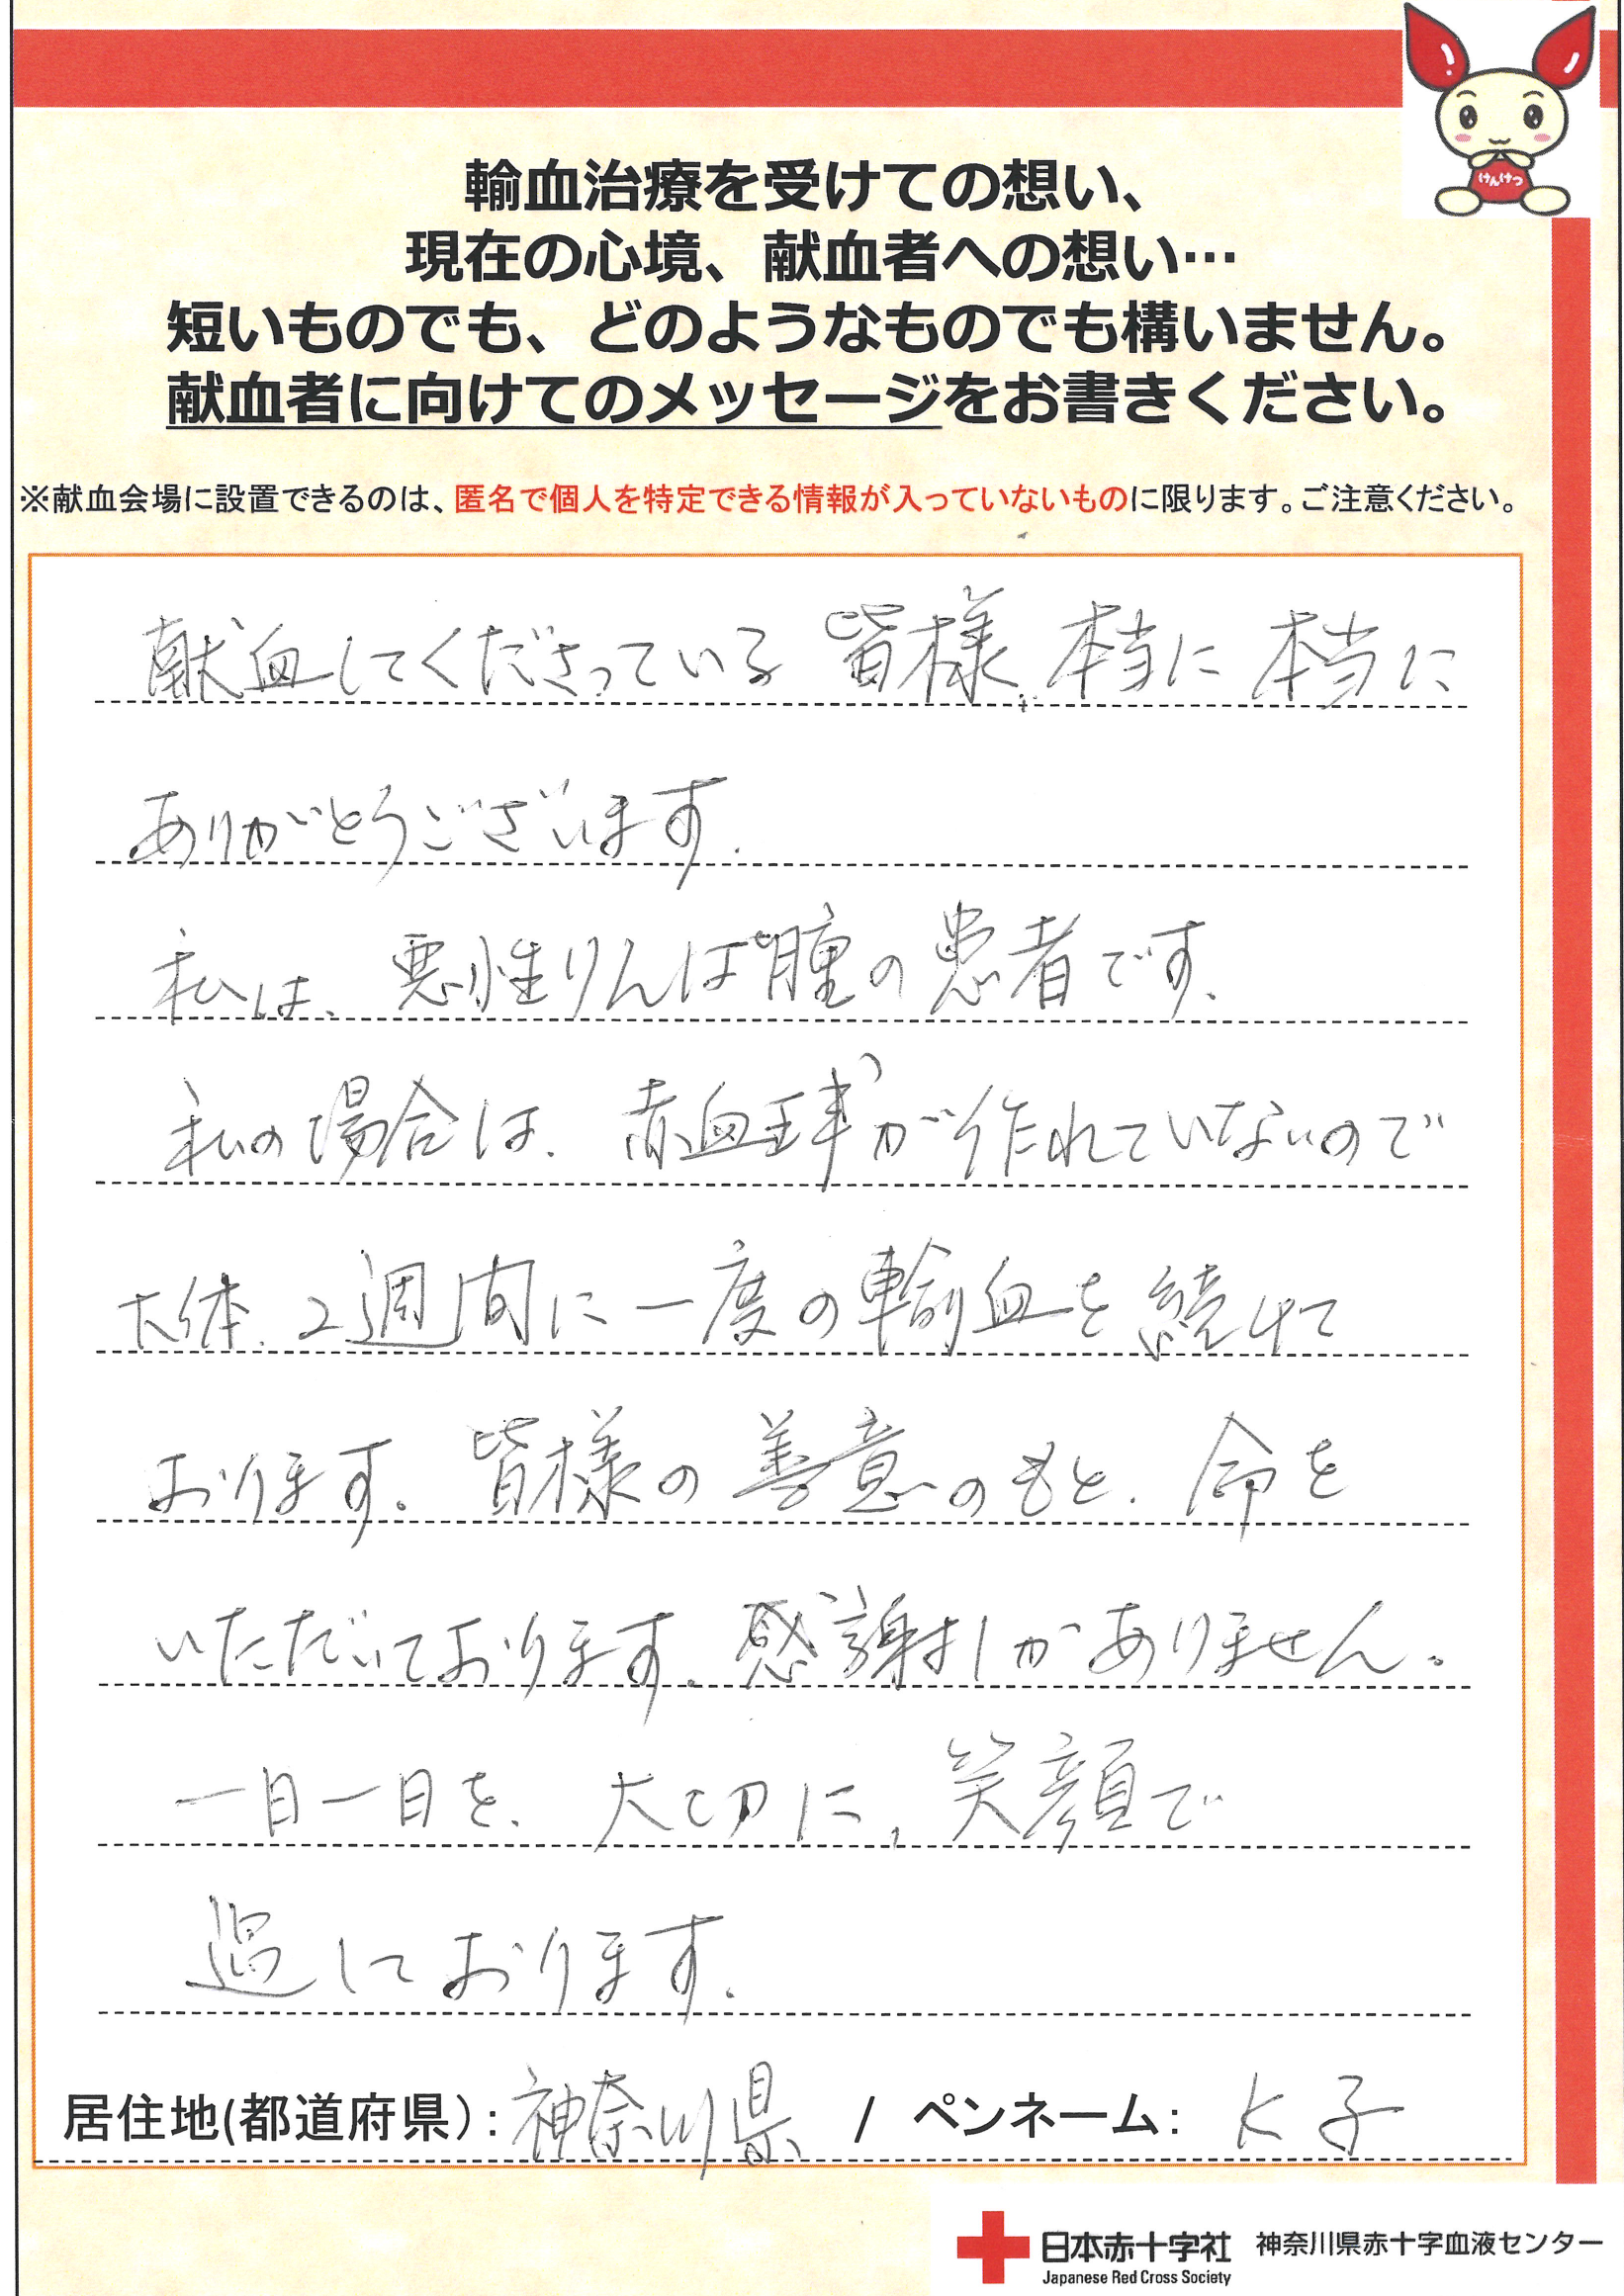 けんけつ
輸血治療を受けての想い、
現在の心境、献血者への想い…
短いものでも、どのようなものでも構いません。
献血者に向けてのメッセージをお書きください。
※献血会場に設置できるのは、匿名で個人を特定できる情報が入っていないものに限ります。ご注意ください。
献血してくださっている皆様、本当に本当に
ありがとうございます。
私は、悪性りんぱ腫の患者です。
私の場合は、赤血球が作れていないので
大体、2週間に一度の輸血を続けて
おります。皆様の善意のもと、命を
いただいております。感謝しかありません。
一日一日を、大切に、笑顔で
過しております。
居住地(都道府県):神奈川県 / ペンネーム: K子
日本赤十字社 神奈川県赤十字血液センター
Japanese Red Cross Society